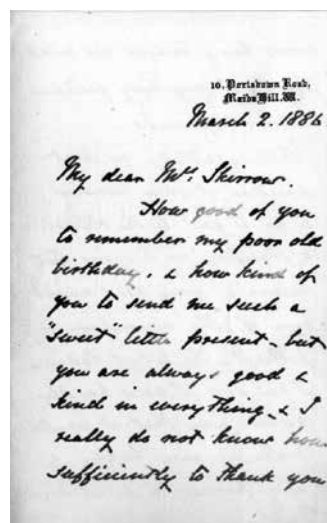 10. Portsdown Road,
Maida Hill. W.
March 2. 1886
My dear Mrs. Skirrow.
How good of you
to remember my poor old
birthday, & how kind of
you to send me such a
"sweet" little present - but
you are always good &
kind in everything, & I
really do not know how
sufficiently to thank you